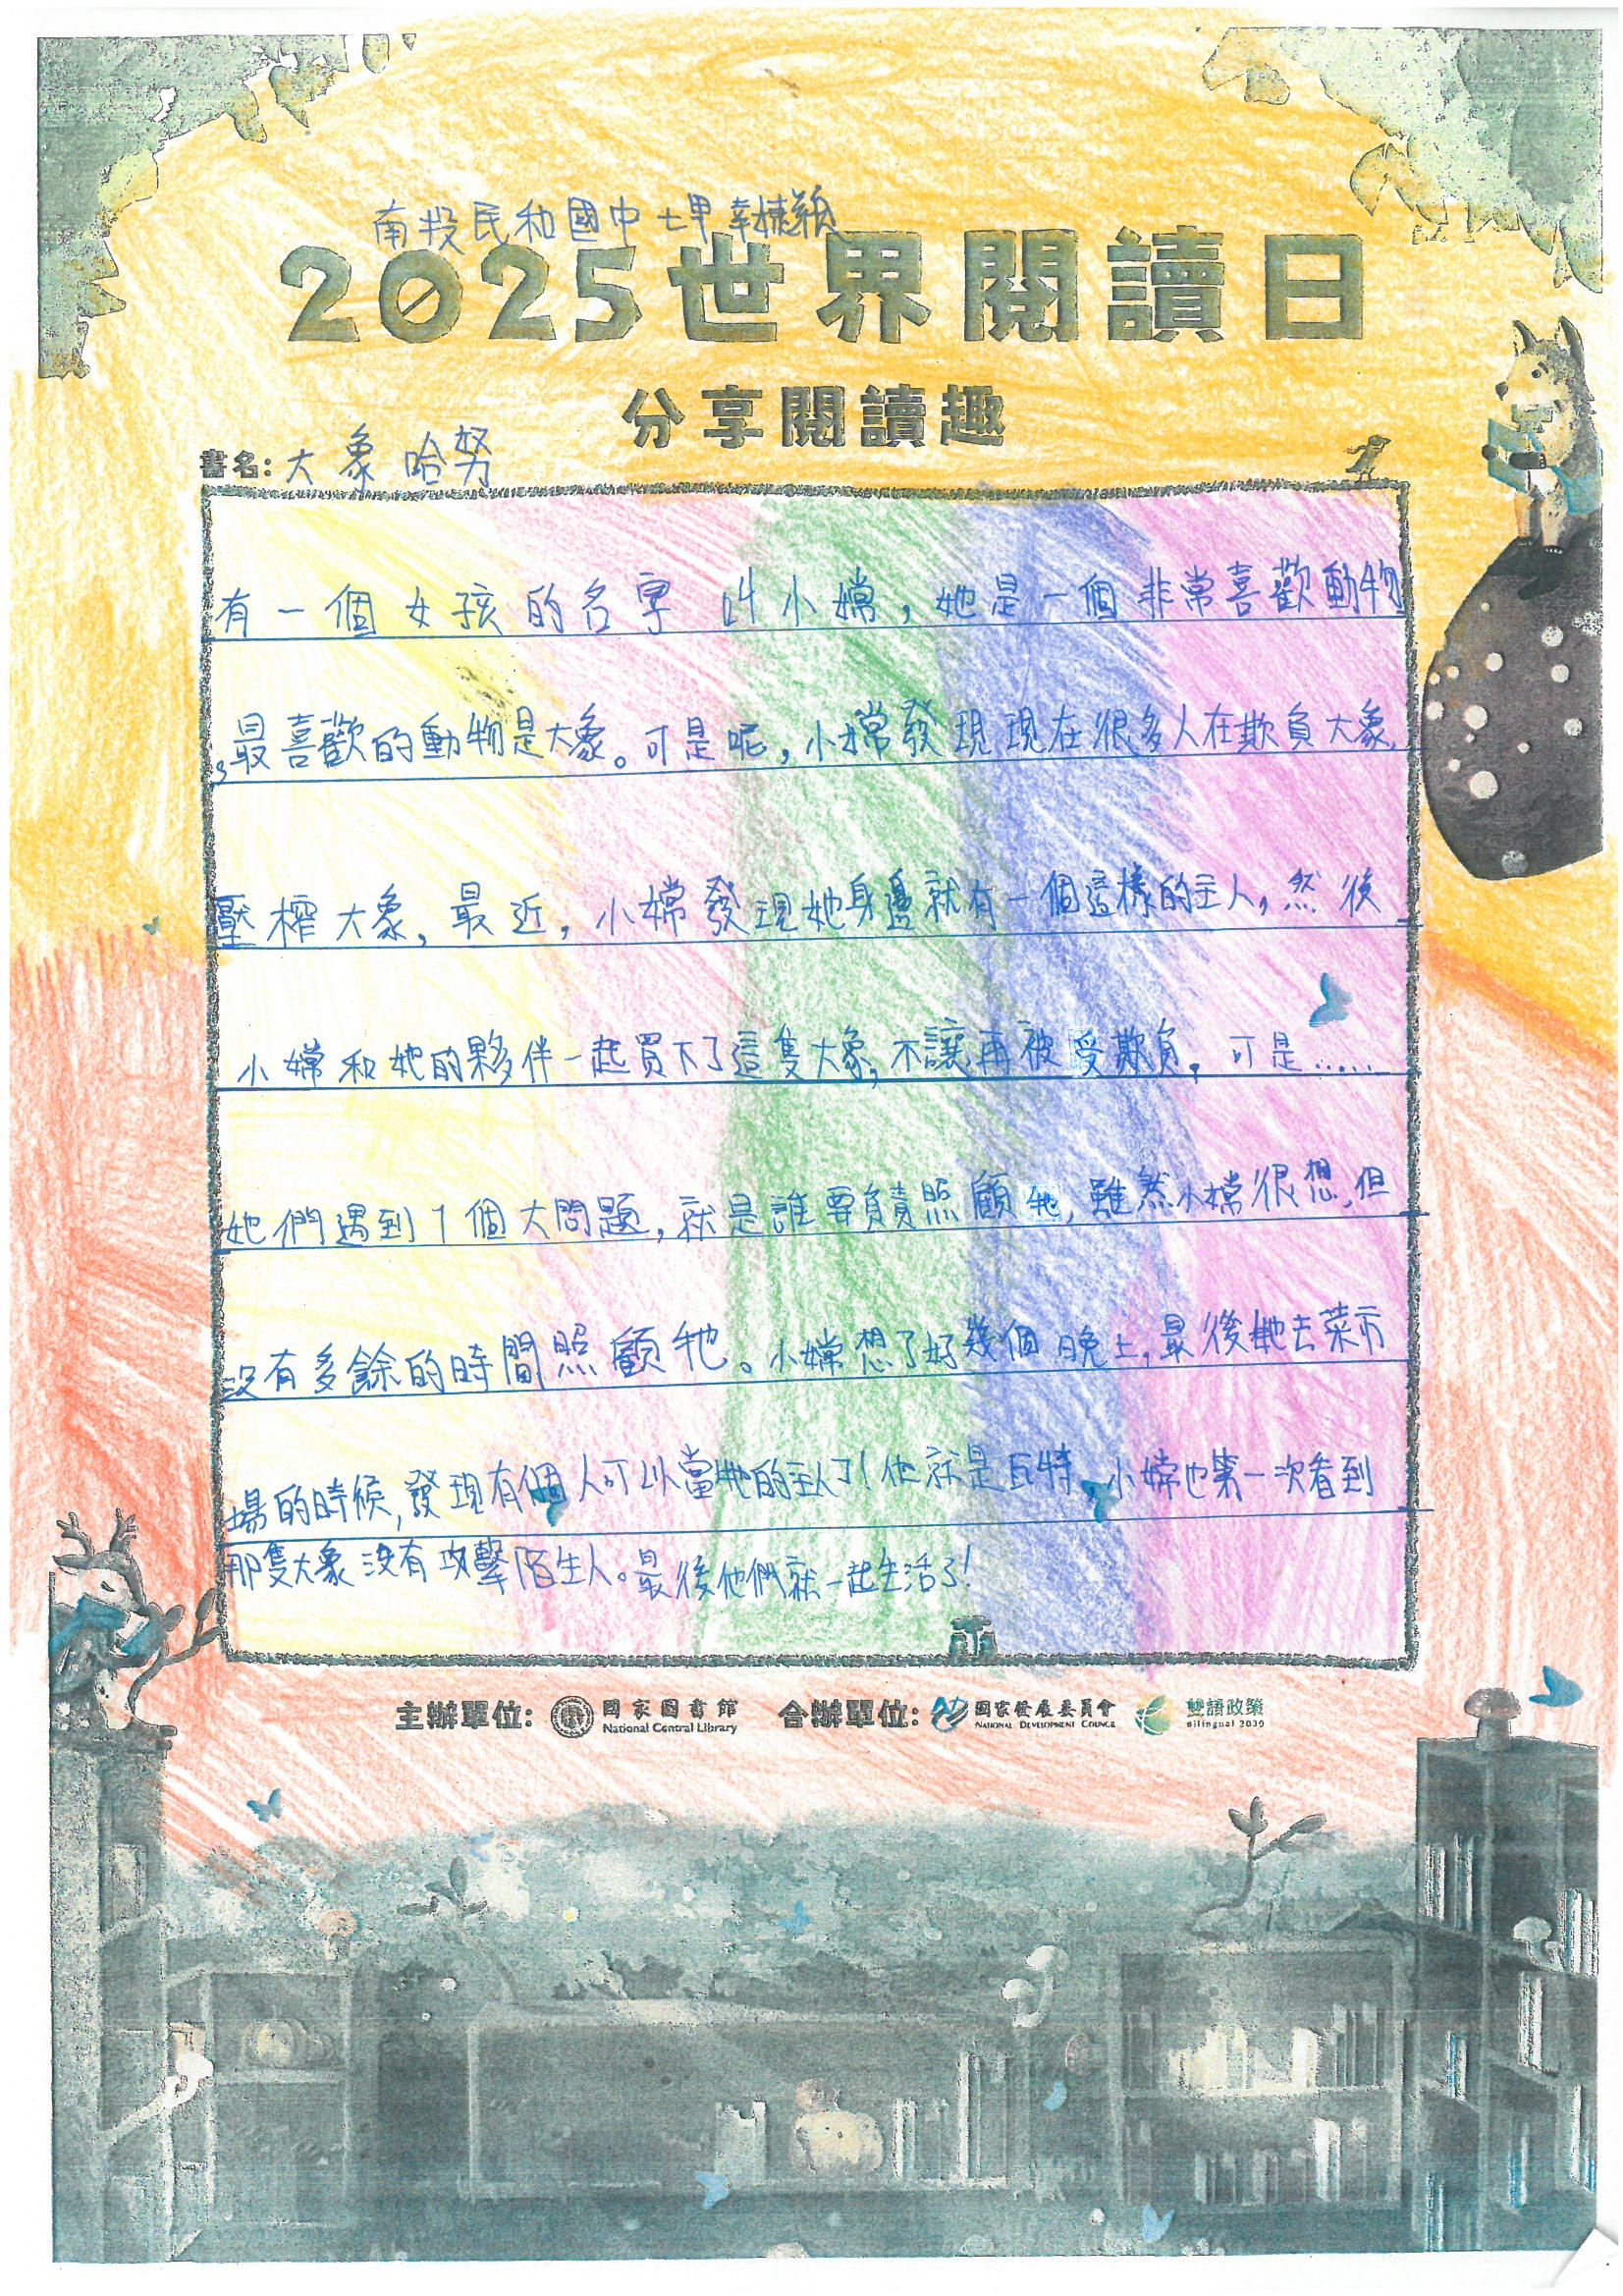 南投民和國中 七甲 幸棣穎
2025世界閱讀日
分享閱讀趣
書名: 大象哈努
有一個女孩的名字 叫小嫦，她是一個非常喜歡動物
，最喜歡的動物是大象。可是呢，小嫦發現現在很多人在欺負大象，
壓榨大象，最近，小嫦發現她身邊就有一個這樣的主人，然後
小嫦和她的夥伴一起買下了這隻大象，不讓再被受欺負。可是……
她們遇到1個大問題，就是誰要負責照顧牠，雖然小嫦很想，但
沒有多餘的時間照顧牠。小嫦想了好幾個晚上，最後她去菜市
場的時候，發現有個人可以當牠的主人了！他就是瓦特，小嫦也第一次看到
那隻大象沒有攻擊陌生人。最後他們就一起生活了！
主辦單位: 國家圖書館 National Central Library 合辦單位: 國家發展委員會 NATIONAL DEVELOPMENT COUNCIL 雙語政策 Bilingual 2030